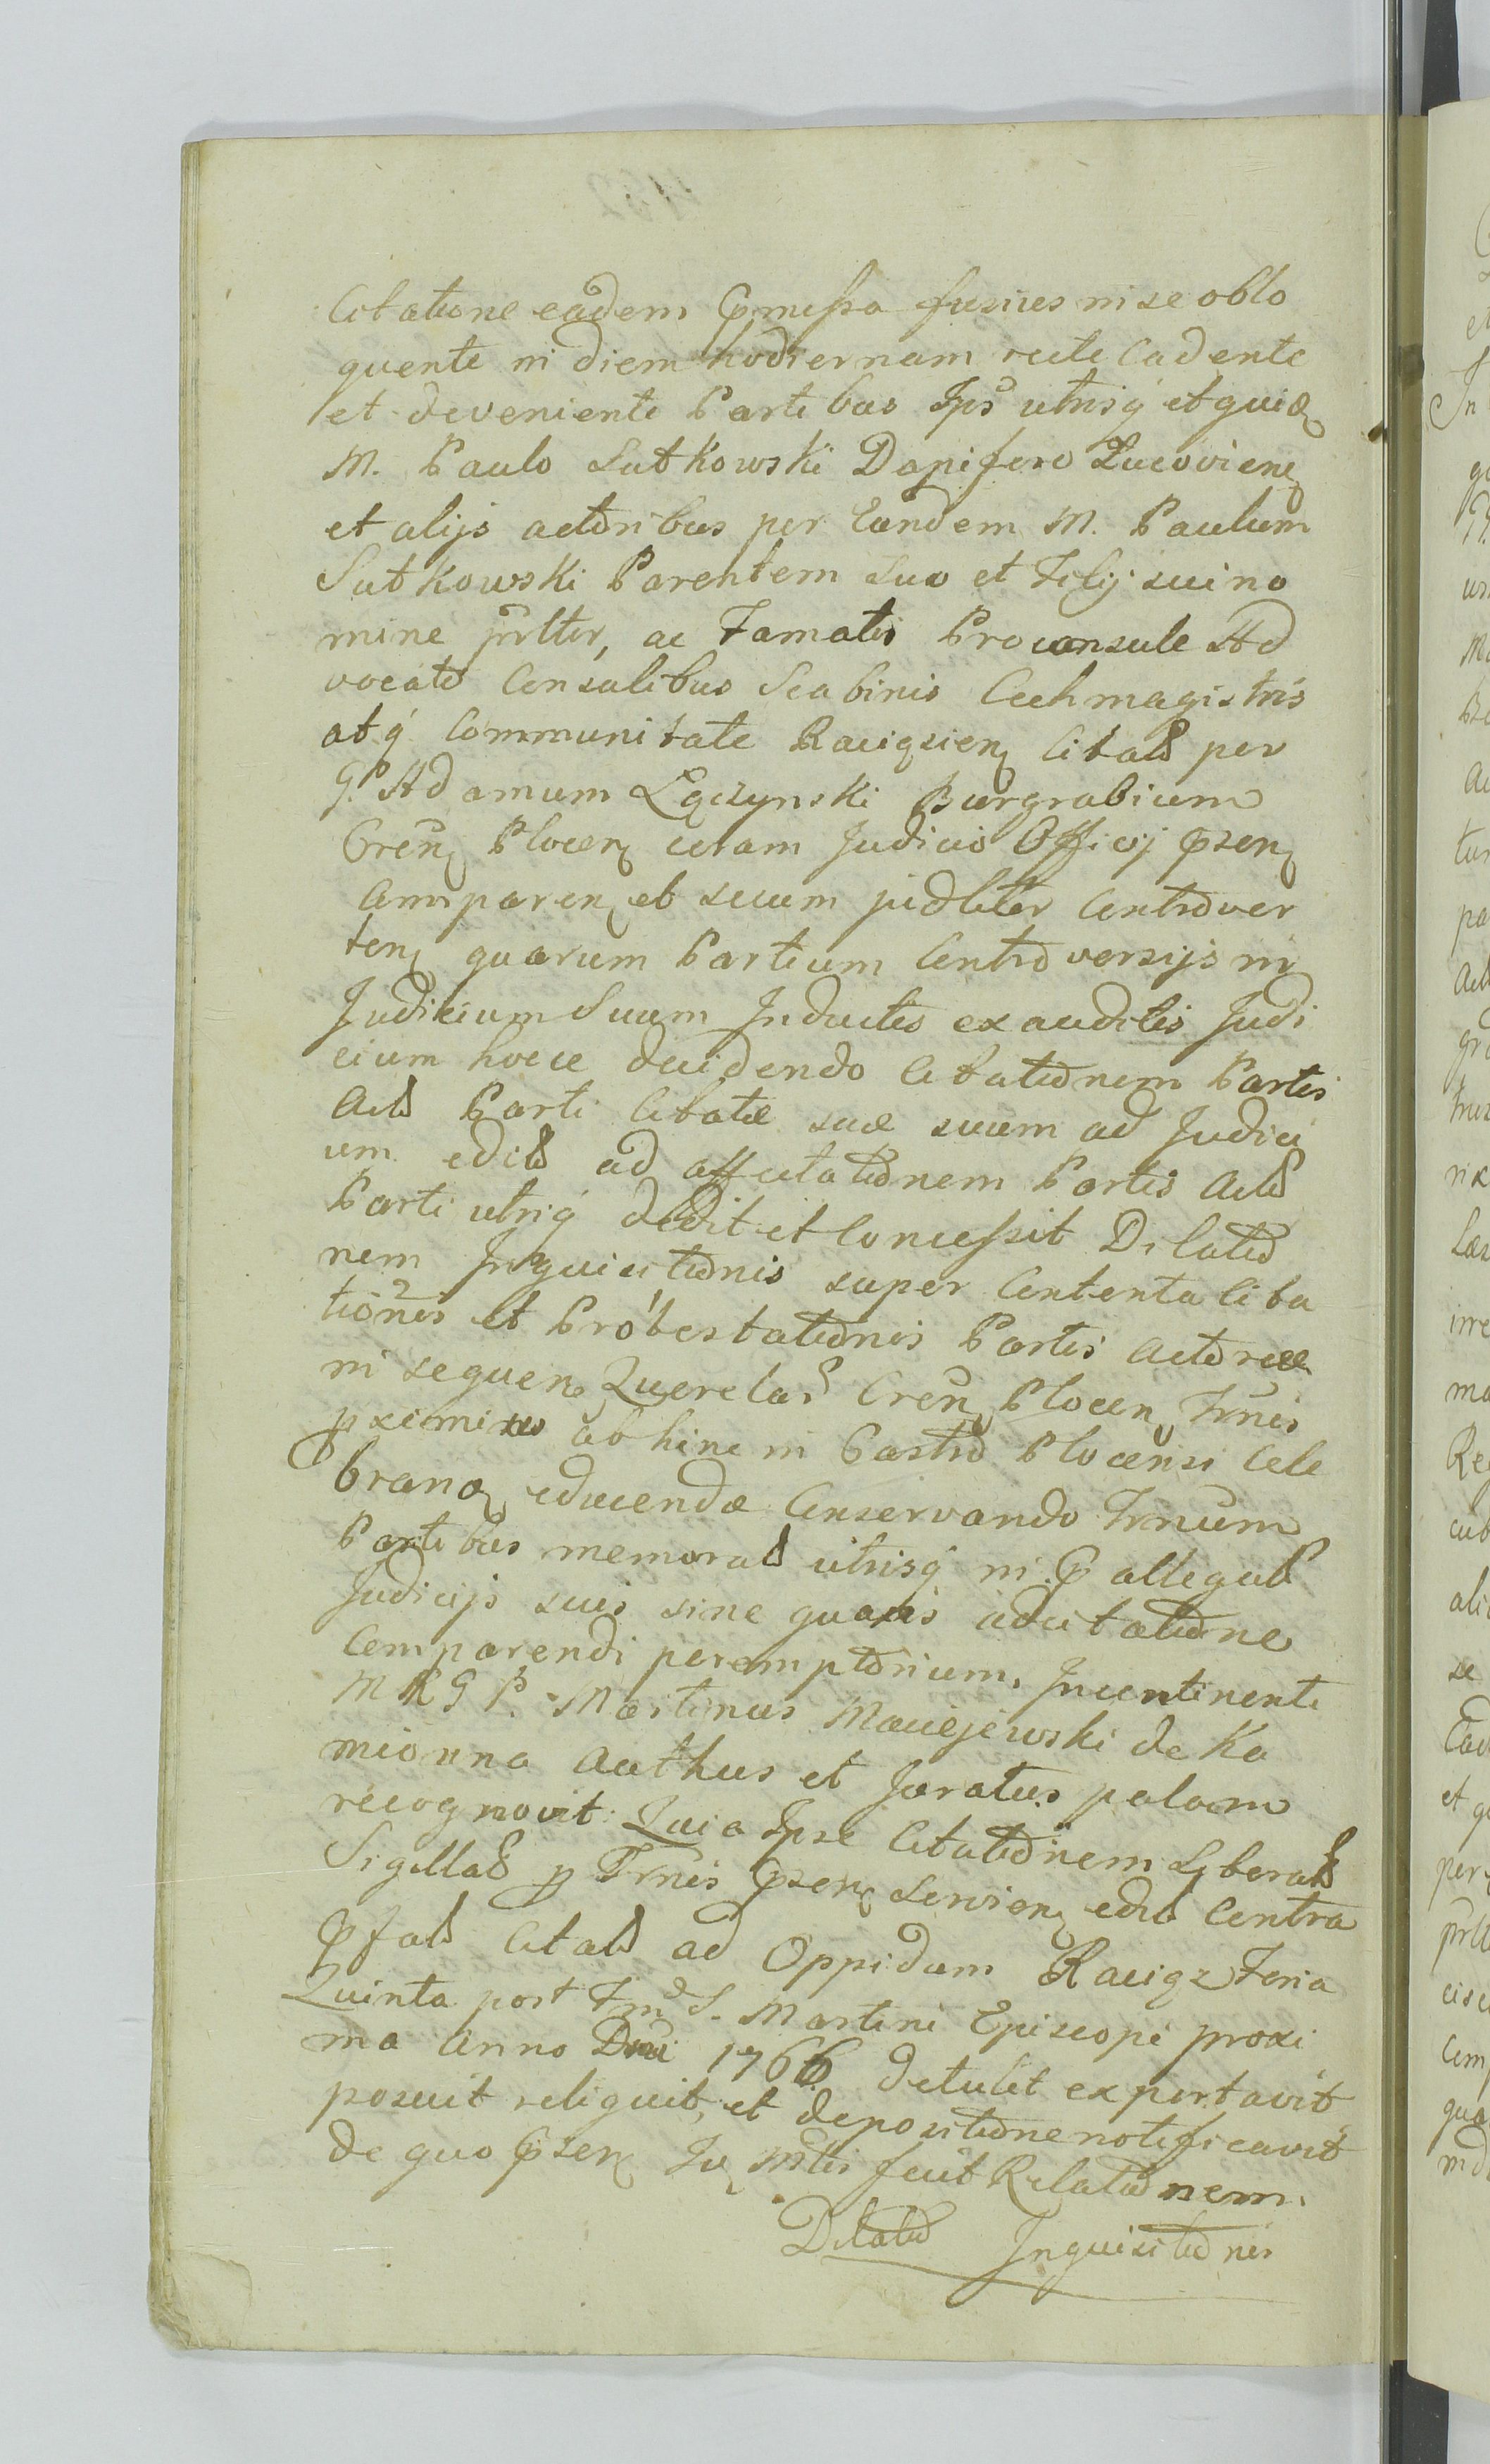 Citatione eadem pmissa fusius in se oblo
quente in diem hodiernam recte Cadente
et deveniente Partibus Ips utrisq et quid
M. Paulo Sutkowski Dapifero Lucovien
et alijs actoribus per Eundem M. Paulum
Sutkowski Parentem Suo et Filij sui no
mine prltter, ac Famatis Proconsule Ad
vocato Consulibus Scabinis Cechmagistris
atq Communitate Raciązien Citatt per
G. Adamum Łączynski Burgrabium
Cren Plocen coram Judicio Officij psen
Comparen et secum judlitter Controver
ten quarum Partium Controversijs in
Judicium Suum Inductis exauditis Judi
cium hocce decidendo Citationem Partis
Act Parti Citatæ suæ suum ad Judici
um edit ad affectationem Partis Act
Parti utriq dedit et Concessit Dilatio
nem Inquisitionis super Contenta Cita
tionis et Protestationis Partis actoreæ
in sequen Querelar Cren Plocen Trnis
pximius abhinc in Castro Plocensi Cele
bran educendæ Conservando Trnum
Partibus memorat utrisq in p allegat
Judicijs suis sine quavis adcitatione
Comparendi peremptorium. Incontinenti
M R G P. Martinus Maciejewski de Ka
mionna Authus et Juratus palam
recognovit: Quia Ipse Citationem Lyberat
Sigillat p Trnis psen Servien edit Contra
pfat Citat ad Oppidum Raciąz Feria
Quinta post Fm S. Martini Episcopi proxi
ma Anno Dni 1766 detulit exportavit
posuit reliquit, et de positione notificavit
de quo psen Ju mltis fecit Relationem.
Dilatio Inquisitionis